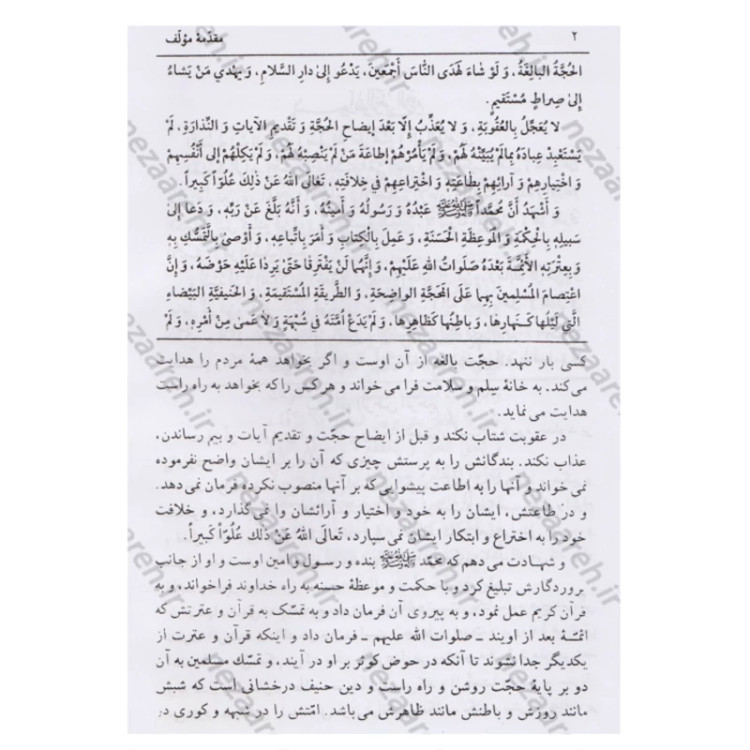 ۲ مقدّمهٔ مؤلّف
الحُجَّةُ البالِغَةُ، وَ لَوْ شاءَ لَهَدَى النّاسَ أَجْمَعينَ، يَدْعُو إلىٰ دارِ السَّلامِ، وَ يَهْدي مَنْ يَشاءُ
إلىٰ صِراطٍ مُسْتَقيمٍ.
لا يُعَجِّلُ بِالعُقُوبَةِ، وَ لا يُعَذِّبُ إلّا بَعْدَ إيضاحِ الحُجَّةِ وَ تَقْديمِ الآياتِ وَ النِّذارَةِ، لَمْ
يَسْتَعْبِدْ عِبادَهُ بِمالَمْ يُبَيِّنْهُ لَهُمْ، وَ لَمْ يَأْمُرْهُمْ بِإطاعَةِ مَنْ لَمْ يَنْصِبْهُ لَهُمْ، وَ لَمْ يَكِلْهُمْ إلى أَنْفُسِهِمْ
وَ اخْتِيارِهِمْ وَ آرائِهِمْ بِطاعَتِهِ وَ اخْتِراعِهِمْ في خِلافَتِهِ، تَعَالَى اللهُ عَنْ ذٰلِكَ عُلُوّاً كَبيراً.
وَ أَشْهَدُ أَنَّ مُحَمَّداً ﷺ عَبْدُهُ وَ رَسُولُهُ وَ أَمينُهُ، وَ أَنَّهُ بَلَّغَ عَنْ رَبِّهِ، وَ دَعا إلىٰ
سَبيلِهِ بِالحِكْمَةِ وَ المَوعِظَةِ الحَسَنَةِ، وَ عَمِلَ بِالْكِتابِ وَ أَمَرَ بِاتِّباعِهِ، وَ أَوْصىٰ بِالتَّمَسُّكِ بِهِ
وَ بِعِتْرَتِهِ الأَئِمَّةِ بَعْدَهُ صَلَواتُ اللهِ عَلَيْهِمْ، وَ إِنَّهُما لَنْ يَفْتَرِقا حَتّىٰ يَرِدا عَلَيْهِ حَوْضَهُ، وَ إِنَّ
اعْتِصامَ المُسْلِمينَ بِهِما عَلَى المَحَجَّةِ الواضِحَةِ، وَ الطَّريقَةِ المُسْتَقيمَةِ، وَ الحَنيفِيَّةِ البَيْضاءِ
الَّتي لَيْلُها كَنَهارِها، وَ باطِنُها كَظاهِرِها، وَ لَمْ يَدَعْ أُمَّتَهُ في شُبْهَةٍ وَ لا عَمىً مِنْ أَمْرِهِ، وَ لَمْ
کسی بار ننهد. حجّت بالغه از آن اوست و اگر بخواهد همهٔ مردم را هدایت
می‌کند. به خانهٔ سِلم و سلامت فرا می‌خواند و هر کس را که بخواهد به راه راست
هدایت می‌نماید.
در عقوبت شتاب نکند و قبل از ایضاح حجّت و تقدیم آیات و بیم رساندن،
عذاب نکند. بندگانش را به پرستش چیزی که آن را بر ایشان واضح نفرموده
نمی‌خواند و آنها را به اطاعت پیشوایی که بر آنها منصوب نکرده فرمان نمی‌دهد.
و در طاعتش، ایشان را به خود و اختیار و آرائشان وا نمی‌گذارد، و خلافت
خود را به اختراع و ابتکار ایشان نمی‌سپارد، تَعالَى اللهُ عَنْ ذٰلِكَ عُلُوّاً كَبيراً.
و شهادت می‌دهم که محمّد ﷺ بنده و رسول و امین اوست و او از جانب
پروردگارش تبلیغ کرد و با حکمت و موعظهٔ حسنه به راه خداوند فراخواند، و به
قرآن کریم عمل نمود، و به پیروی آن فرمان داد و به تمسّک به قرآن و عترتش که
ائمّهٔ بعد از اویند ـ صلوات الله علیهم ـ فرمان داد و اینکه قرآن و عترت از
یکدیگر جدا نشوند تا آنکه در حوض کوثر بر او در آیند، و تمسّک مسلمین به آن
دو بر پایهٔ حجّت روشن و راه راست و دین حنیف درخشانی است که شبش
مانند روزش و باطنش مانند ظاهرش می‌باشد. امّتش را در شبهه و کوری در
nezaareh.ir